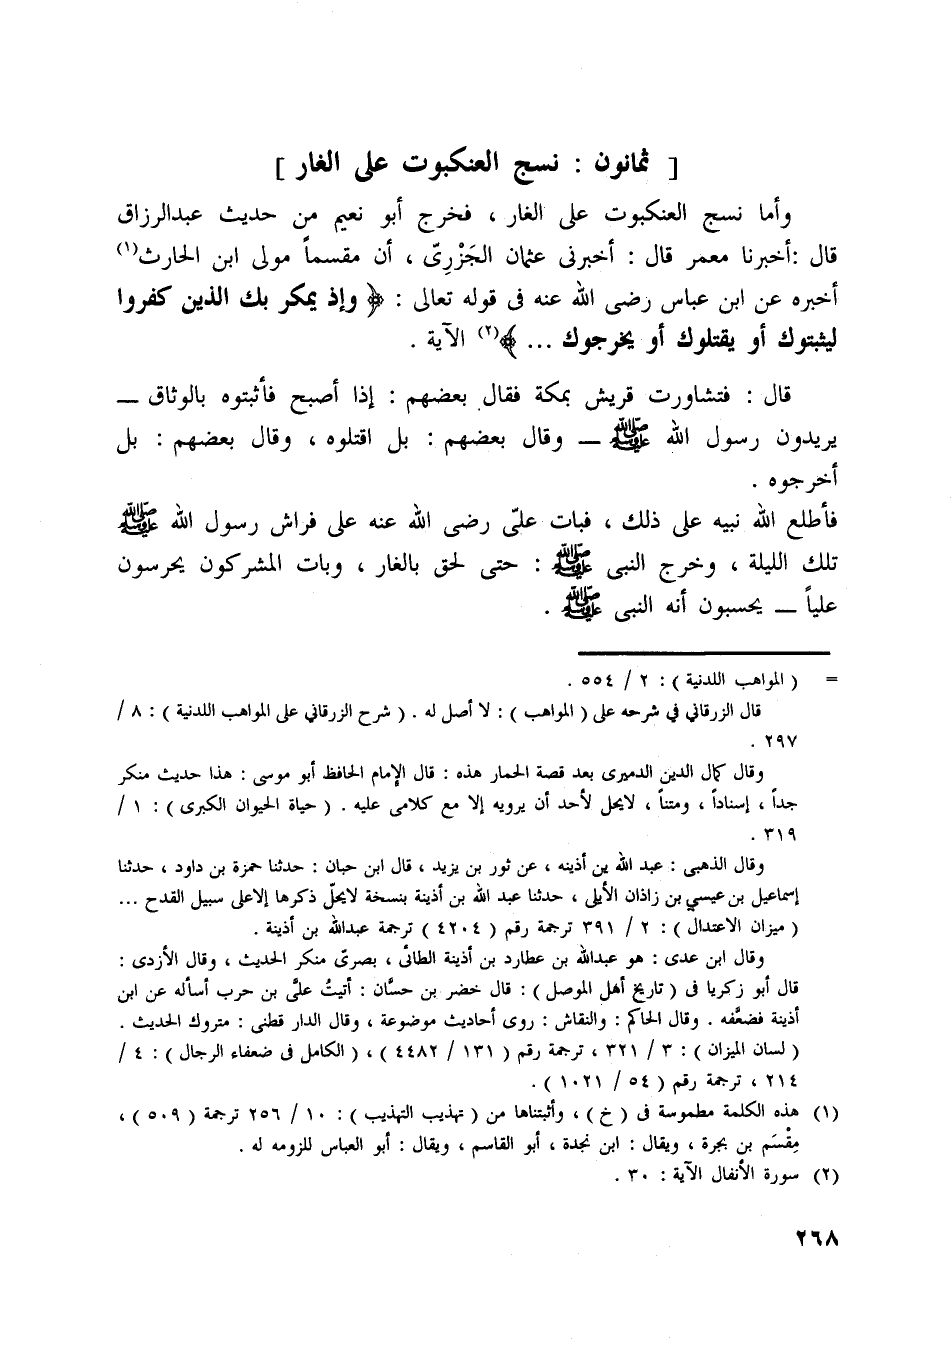 [ ثمانون : نسج العنكبوت على الغار ]
وأما نسج العنكبوت على الغار ، فخرج أبو نعيم من حديث عبدالرزاق
قال :أخبرنا معمر قال : أخبرنى عثمان الجَزْرِىّ ، أن مقسماً مولى ابن الحارث(١)
أخبره عن ابن عباس رضى الله عنه فى قوله تعالى : ﴿ وإذ يمكر بك الذين كفروا
ليثبتوك أو يقتلوك أو يخرجوك ... ﴾(٢) الآية .
قال : فتشاورت قريش بمكة فقال بعضهم : إذا أصبح فأثبتوه بالوثاق ــ
يريدون رسول الله ﷺ ــ وقال بعضهم : بل اقتلوه ، وقال بعضهم : بل
أخرجوه .
فأطلع الله نبيه على ذلك ، فبات علىّ رضى الله عنه على فراش رسول الله ﷺ
تلك الليلة ، وخرج النبى ﷺ : حتى لحق بالغار ، وبات المشركون يحرسون
علياً ــ يحسبون أنه النبى ﷺ .
= ( المواهب اللدنية ) : ٢ / ٥٥٤ .
قال الزرقاني في شرحه على ( المواهب ) : لا أصل له . ( شرح الزرقاني على المواهب اللدنية ) : ٨ /
٢٩٧ .
وقال كمال الدين الدميرى بعد قصة الحمار هذه : قال الإمام الحافظ أبو موسى : هذا حديث منكر
جداً ، إسناداً ، ومتناً ، لايحل لأحد أن يرويه إلا مع كلامى عليه . ( حياة الحيوان الكبرى ) : ١ /
٣١٩ .
وقال الذهبي : عبد الله بن أذينه ، عن ثور بن يزيد ، قال ابن حبان : حدثنا حمزة بن داود ، حدثنا
إسماعيل بن عيسي بن زاذان الأيلى ، حدثنا عبد الله بن أذينة بنسخة لايحلّ ذكرها إلاعلى سبيل القدح ...
( ميزان الاعتدال ) : ٢ / ٣٩١ ترجمة رقم ( ٤٢٠٤ ) ترجمة عبدالله بن أذينة .
وقال ابن عدى : هو عبدالله بن عطارد بن أذينة الطائى ، بصرىّ منكر الحديث ، وقال الأزدى :
قال أبو زكريا فى ( تاريخ أهل الموصل ) : قال خضر بن حسَّان : أتيتُ علىَّ بن حرب أسأله عن ابن
أذينة فضعَّفه . وقال الحاكم : والنقاش : روى أحاديث موضوعة ، وقال الدار قطنى : متروك الحديث .
( لسان الميزان ) : ٣ / ٣٢١ ، ترجمة رقم ( ١٣١ / ٤٤٨٢ ) ، ( الكامل فى ضعفاء الرجال ) : ٤ /
٢١٤ ، ترجمة رقم ( ٥٤ / ١٠٢١ ) .
(١) هذه الكلمة مطموسة فى ( خ ) ، وأثبتناها من ( تهذيب التهذيب ) : ١٠ / ٢٥٦ ترجمة ( ٥٠٩ ) ،
مِقْسَم بن بجرة ، ويقال : ابن نجدة ، أبو القاسم ، ويقال : أبو العباس للزومه له .
(٢) سورة الأنفال الآية : ٣٠ .
٢٦٨